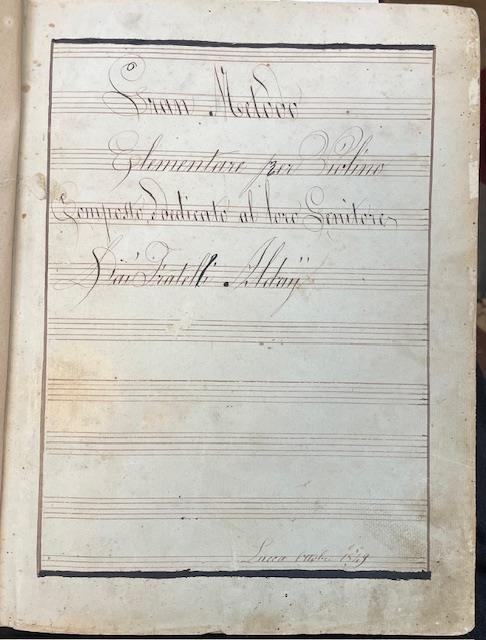 Gran Metodo
Elementare per Violino
Composto, Dedicato al loro Genitore
Dai Fratelli Alday
Lucca